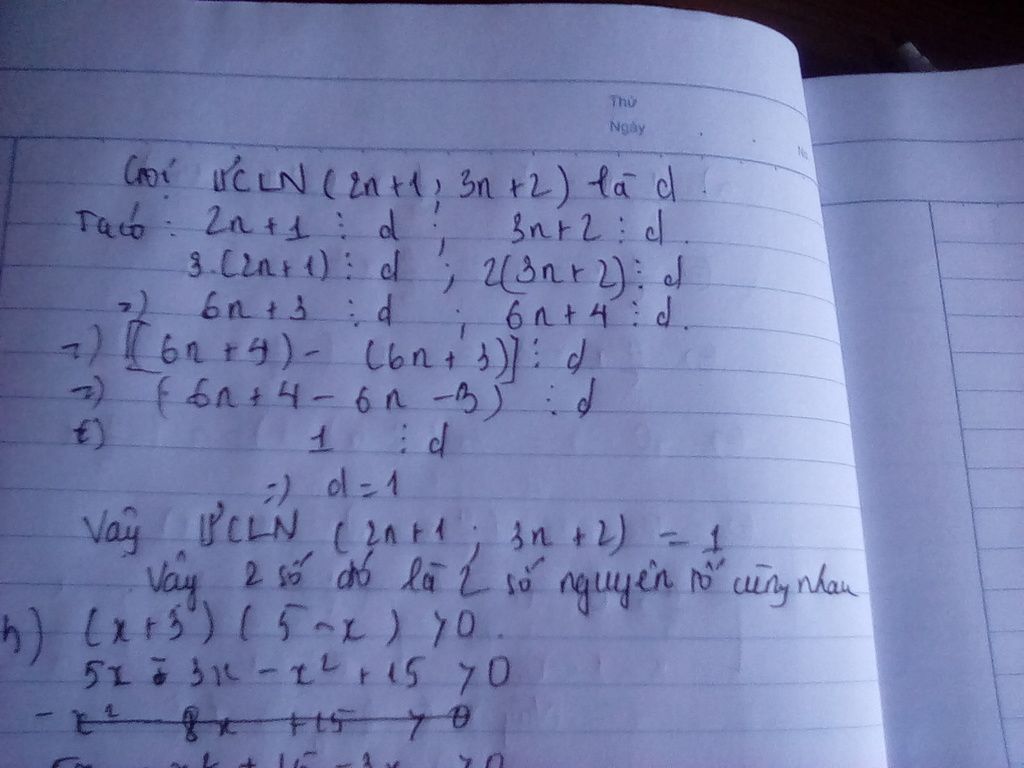 Thứ
Ngày
No
Gọi ƯCLN (2n+1; 3n+2) là d.
Ta có: 2n+1 ⋮ d ; 3n+2 ⋮ d.
3.(2n+1) ⋮ d ; 2(3n+2) ⋮ d
=) 6n+3 ⋮ d ; 6n+4 ⋮ d.
=) [(6n+4) - (6n+3)] ⋮ d
=) (6n+4-6n-3) ⋮ d
1 ⋮ d
=) d=1
Vậy ƯCLN (2n+1; 3n+2) = 1
Vậy 2 số đó là 2 số nguyên tố cùng nhau
h) (x+3) (5-x) >0.
5x - 3x - x² + 15 >0
- x² 8x +15 > 0